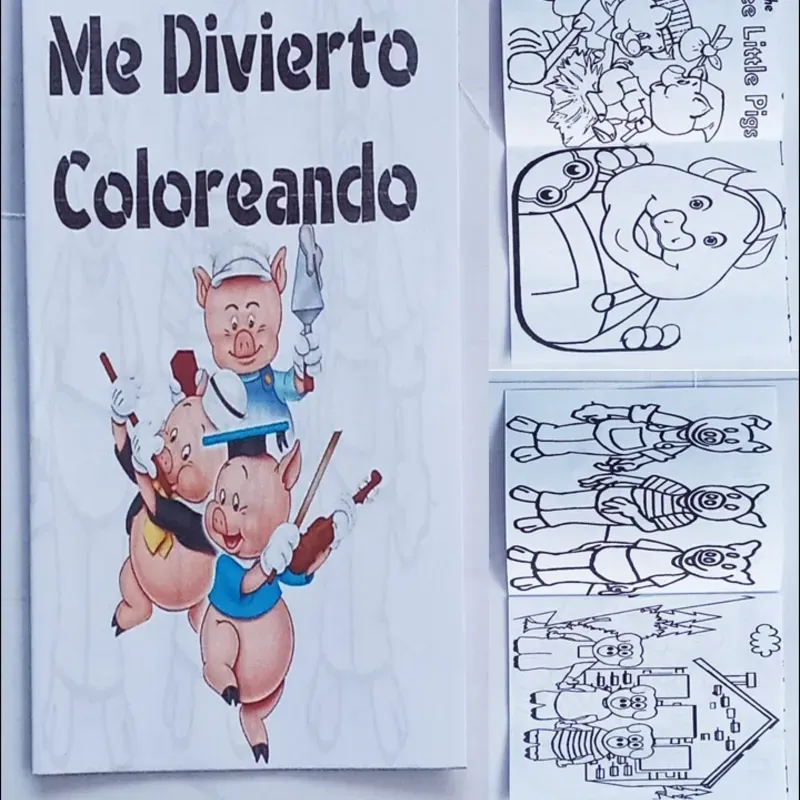 Me Divierto
Coloreando
the
ee Little Pigs